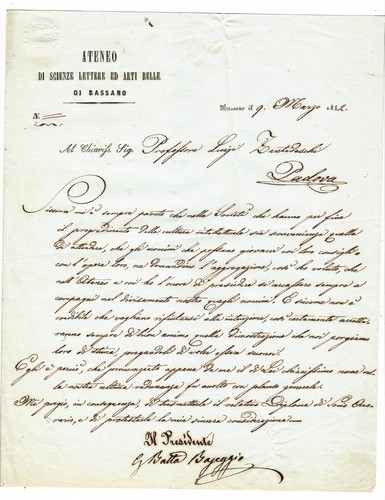 ATENEO
DI SCIENZE LETTERE ED ARTI BELLE
DI BASSANO
Bassano il 9. Marzo 1852
N.
Al Chiariss. Sig. Professore Luigi Zantedeschi
Padova
Siccome mi è sempre paruto che nelle Società che hanno per fine
il progredimento della cultura intellettuale sia convenienza quella
di attendere, che gli uomini che possono giovare con lor consiglio
con l'opera loro, ne domandino l'aggregazione, così ho voluto, che
nell'Ateneo a cui ho l'onore di presiedere si accostasse sempre a
compagni nel divisamento nostro quegli uomini. E siccome non è
credibile che vogliano rifiutarsi alla intenzione, così certamente accette-
ranno sempre di buon animo quella dimostrazione che noi porgiamo
loro di stima, pregandoli di voler essere nostri.
Egli è perciò, che pronunziato appena da me il di Lei chiarissimo nome nel-
la nostra ultima radunanza fu accolto con plauso generale.
Mi pregio, in conseguenza, di trasmetterle il relativo Diploma di Socio Ono-
rario, e di protestarle la mia sincera considerazione.
Il Presidente
G Batta Baseggio